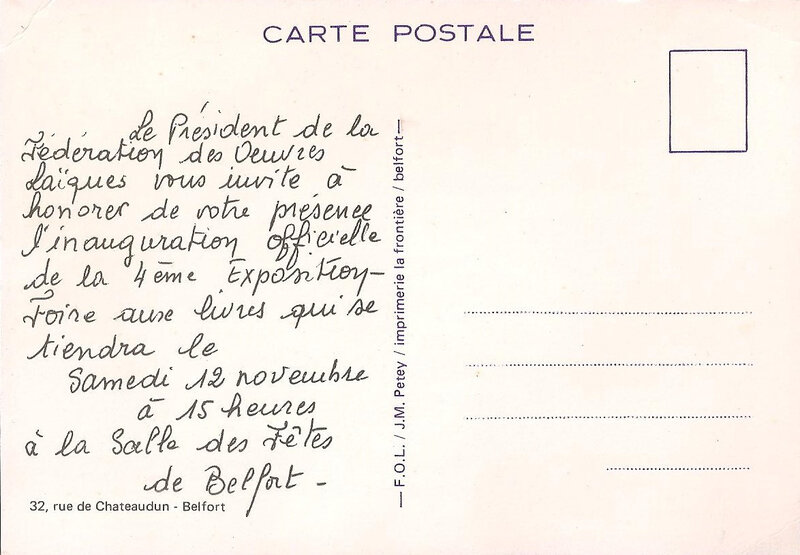 CARTE POSTALE
Le Président de la
Fédération des Oeuvres
Laïques vous invite à
honorer de votre présence
l'inauguration officielle
de la 4ème Exposition-
Foire aux livres qui se
tiendra le
Samedi 12 novembre
à 15 heures
à la Salle des Fêtes
de Belfort -
32, rue de Chateaudun - Belfort
— F.O.L. / J.M. Petey / imprimerie la frontière / belfort —